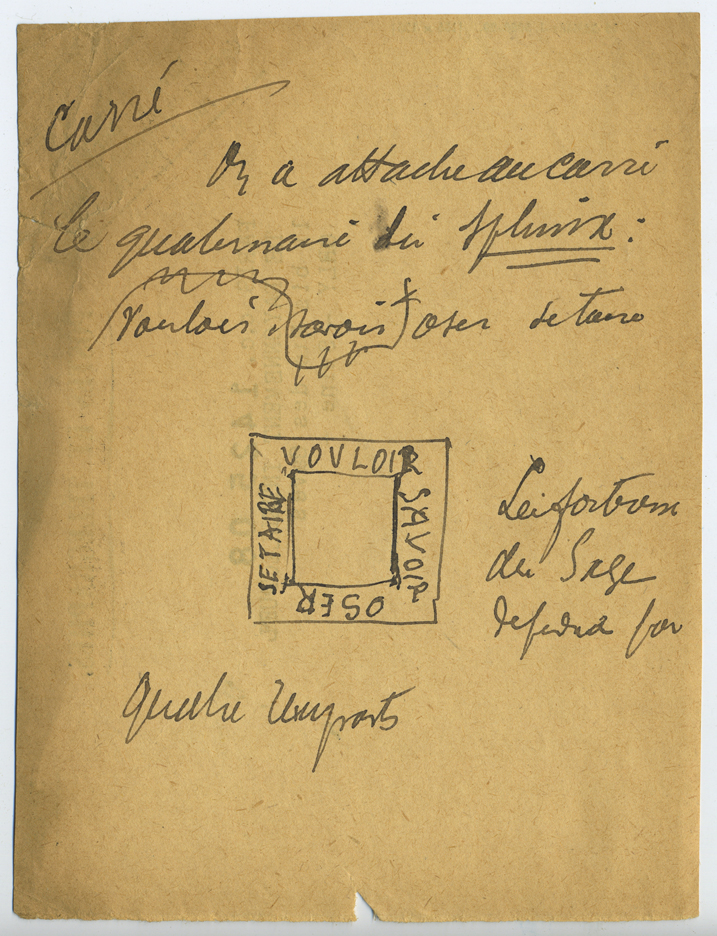 Carré
On a attaché au carré
le quaternaire du Sphinx :
Vouloir Savoir oser se taire
VOULOIR
SAVOIR
OSER
SE TAIRE
du Sage
défendu par
Quatre Remparts